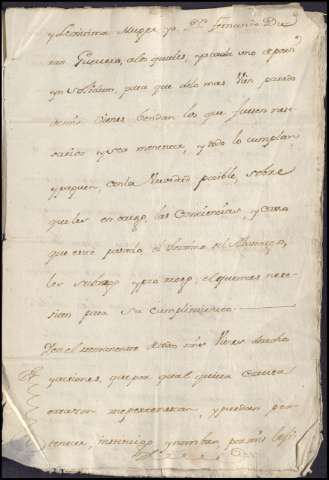 y Legitima Muger y a Dn. Fernando Du
ran Guevara, alos quales, y acada uno deporsi
ynsolidum, para que delo mas bien parado
demis vienes bendan los que fuesen nes
sarios y sea menester, y todo lo cumplan
y paguen, conla brevedad posible, sobre
que les encargo, las Conciencias, y para
que esté pasado, el termino del Albaceazgo,
les subrogo y prorrogo, el que mas nese
sitan para su cumplimiento
Y en el remanente de todos mis vienes derechos
y acciones, que por qual quiera causa
o razon me pertenezcan, y puedan per
tenecer, instituyo y nombro por mis